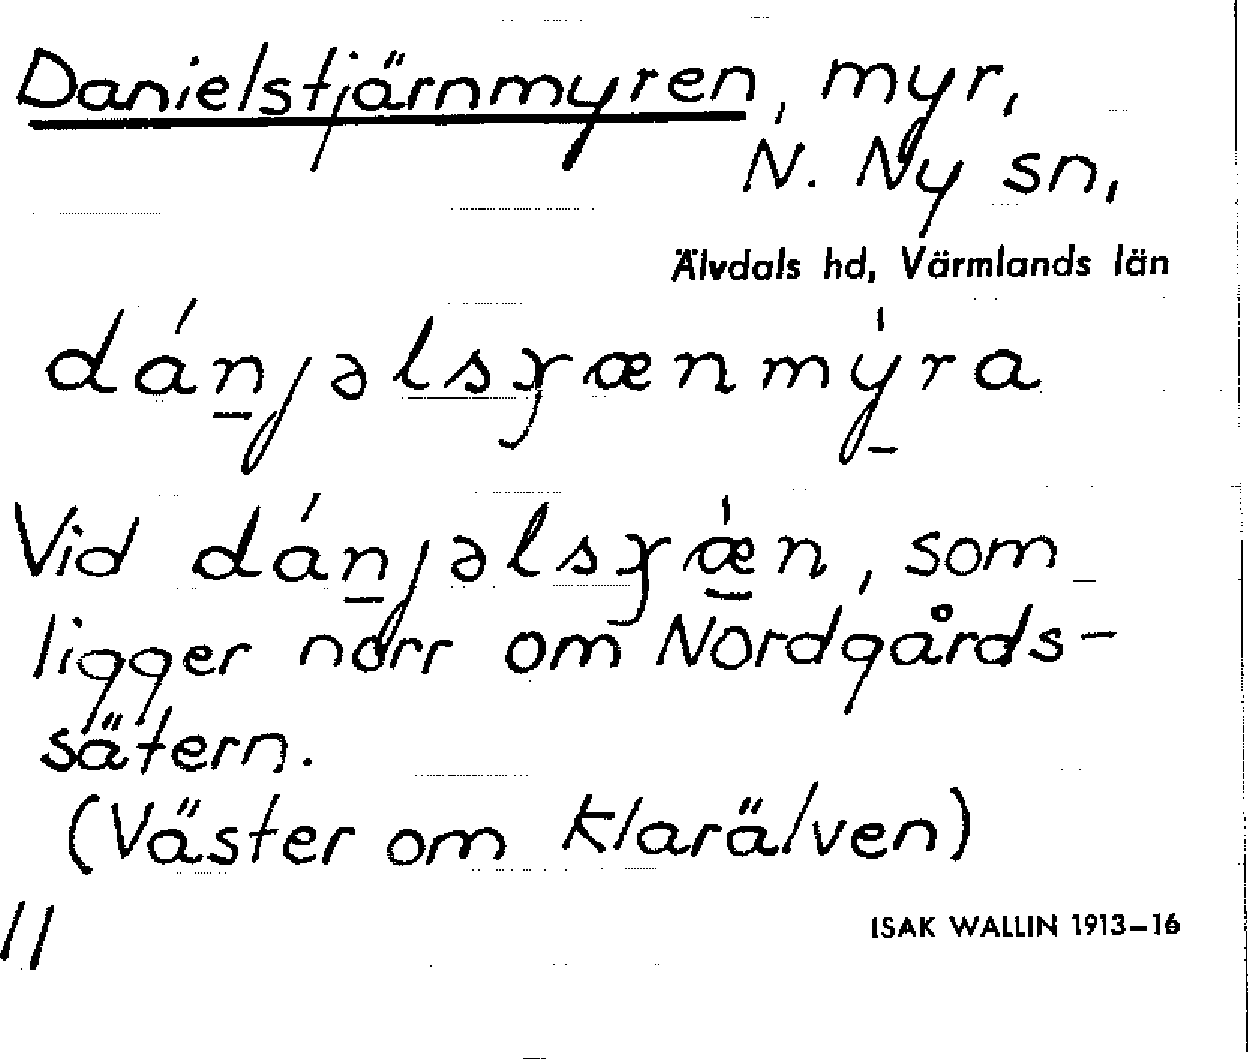 Danielstjärnmyren, myr,
N. Ny sn,
Älvdals hd, Värmlands län
dánjəlsɣænmýra
Vid dánjəlsɣǽn, som
ligger norr om Nordgårds-
sätern.
(Väster om Klarälven)
11
ISAK WALLIN 1913–16